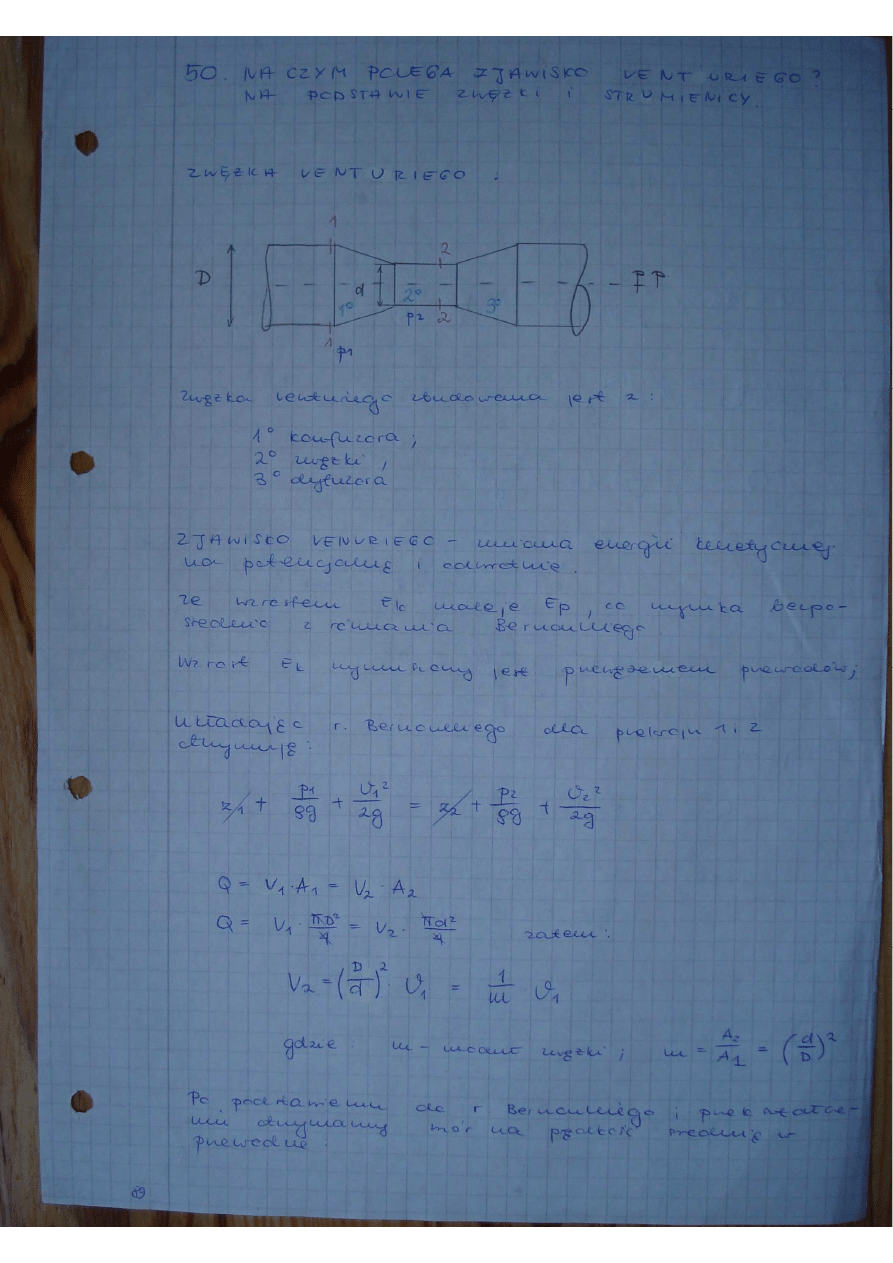 50. NA CZYM POLEGA ZJAWISKO VENTURIEGO?
NA PODSTAWIE ZWĘŻKI I STRUMIENICY.
ZWĘŻKA VENTURIEGO :
1
2
D
d
1° 2° 3°
PP
p2
2
1
p1
Zwężka Venturiego zbudowana jest z:
1° konfuzora ;
2° zwężki ,
3° dyfuzora
ZJAWISKO VENURIEGO - zmiana energii kinetycznej
na potencjalną i odwrotnie.
ze wzrostem Ek maleje Ep, co wynika bezpo-
średnio z równania Bernoulliego
Wzrost Ek wymuszony jest przewężeniem przewodów;
Układając r. Bernoulliego dla przekroju 1 i 2
otrzymuję:
z1 + p1/ρg + v1²/2g = z2 + p2/ρg + v2²/2g
Q = V1 · A1 = V2 · A2
Q = V1 · πD²/4 = V2 · πd²/4 zatem:
V2 = (D/d)² · v1 = 1/m v1
gdzie: m - moduł zwężki ; m = A2/A1 = (d/D)²
Po podstawieniu do r Bernoulliego i przekształce-
niu otrzymamy wzór na prędkość średnią w
przewodzie :
89